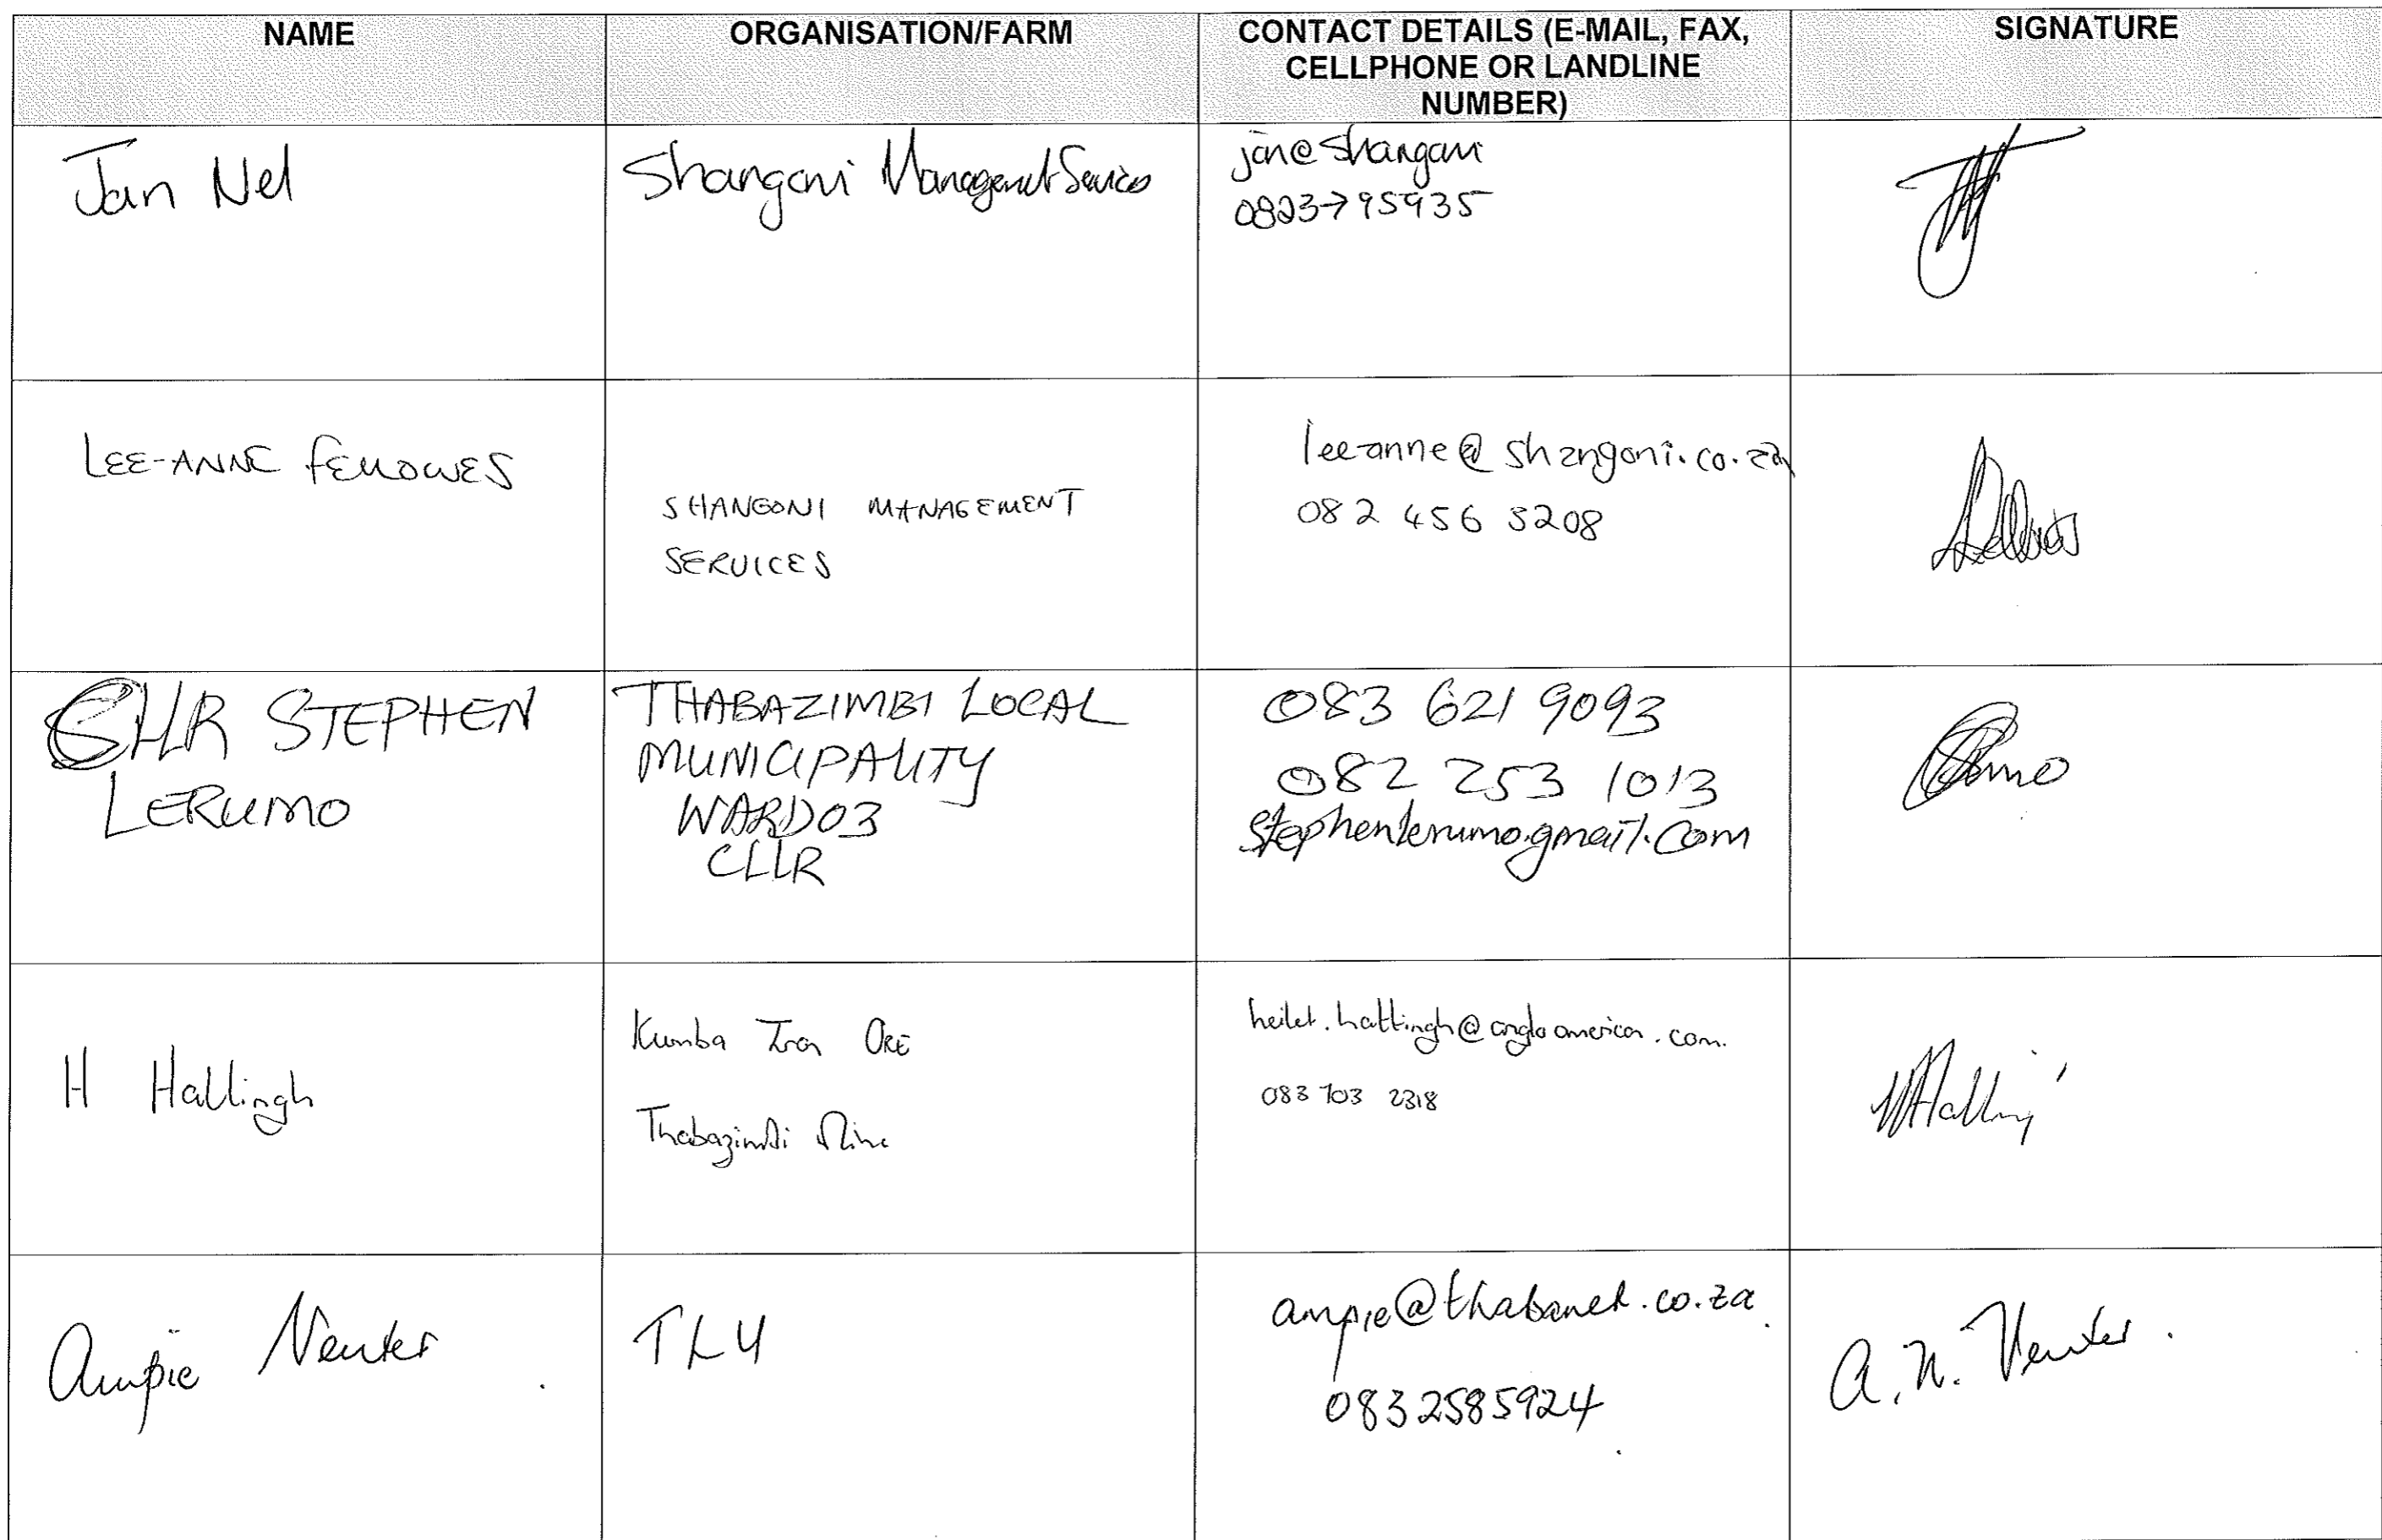 NAME
ORGANISATION/FARM
CONTACT DETAILS (E-MAIL, FAX,
CELLPHONE OR LANDLINE
NUMBER)
SIGNATURE
Jan Nel
Shangoni Management Services
jan@shangoni
0823795935
LEE-ANNE FELLOWES
SHANGONI MANAGEMENT
SERVICES
lee-anne@shangoni.co.za
082 456 3208
STEPHEN
LERUMO
THABAZIMBI LOCAL
MUNICIPALITY
WARD03
CLLR
083 621 9093
082 253 1013
stephenlerumo.gmail.com
H Hattingh
Kumba Iron Ore
Thabazimbi Mine
heilet.hattingh@angloamerican.com.
083 703 2318
Ampie Venter
TLU
ampie@thabanet.co.za.
0832585924
A.N. Venter.